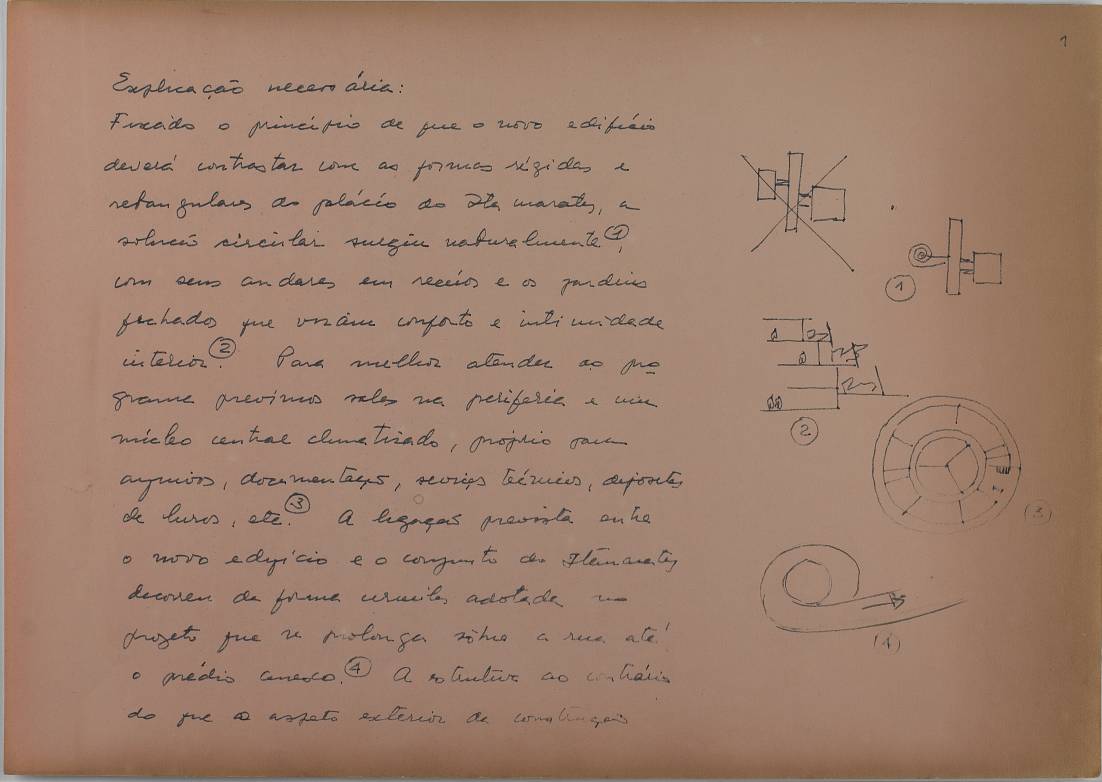 1
Explicação necessária:
Fixado o princípio de que o novo edifício
deverá contrastar com as formas rígidas e
retangulares do palácio do Itamarati, a
solução circular surgiu naturalmente ①,
com seus andares em recúos e os jardins
fechados que visam conforto e intimidade
interior. ② Para melhor atender ao pro
grama previmos salas na periferia e um
núcleo central climatizado, próprio para
arquivos, documentação, serviços técnicos, depósitos
de livros, etc. ③ A ligação prevista entre
o novo edifício e o conjunto do Itamarati
decorreu da forma circular adotada no
projeto que se prolonga sôbre a rua até
o prédio anexo. ④ A estrutura ao contrário
do que o aspeto exterior da construção
①
②
(3)
(4)